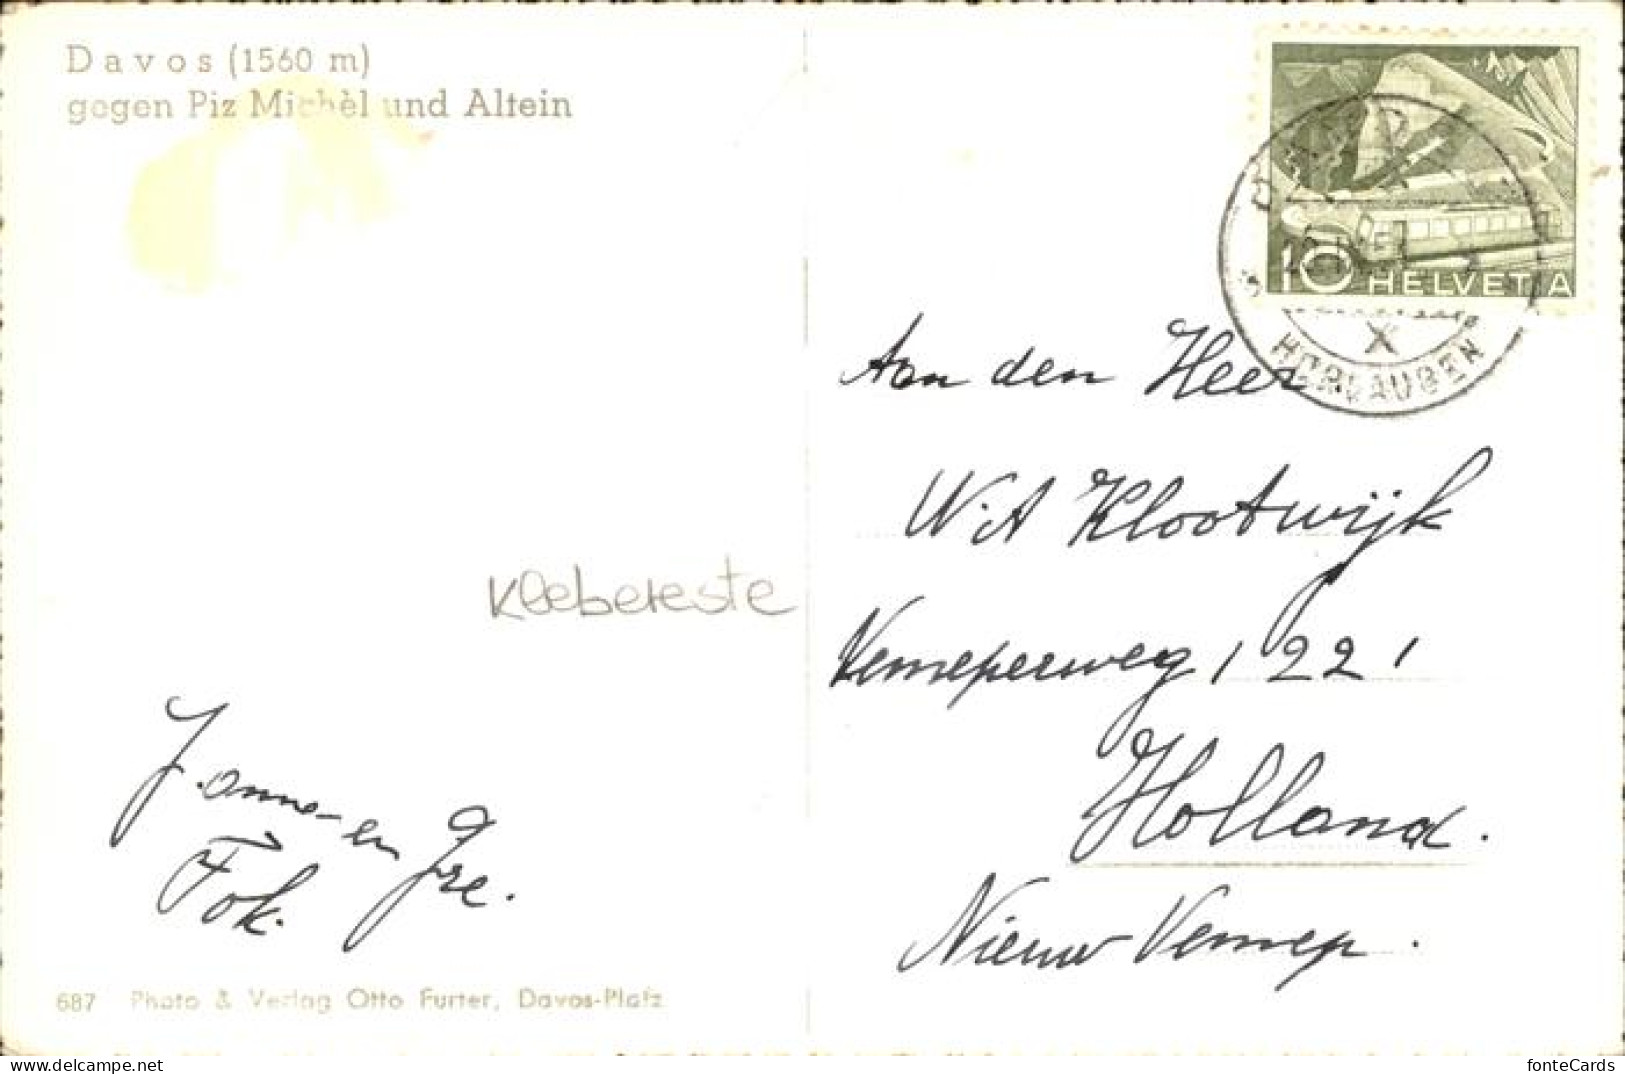 Davos (1560 m)
gegen Piz Michèl und Altein
10 HELVETIA
X
Aan den Heer
W.A Klootwijk
Venneperweg 1221
Holland.
Nieuw Vennep.
Klebereste
Janne en Gre.
Fok.
687 Photo & Verlag Otto Furter, Davos-Platz
fonteCards